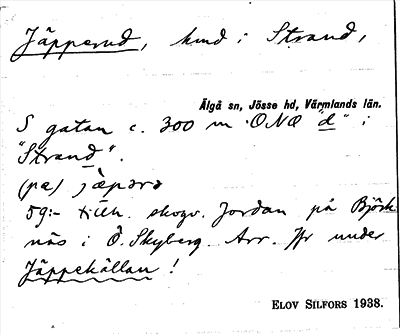 Jäpperud, hmd i Strand,
Älgå sn, Jösse hd, Värmlands län.
S gatan c. 300 m ONO "d" i
"Strand".
(pæ) jæ̀pərə
59:- tillh. skogv. Jordan på Björk-
näs i Ö. Skyberg. Arr. Jfr under
Jäppekällan!
ELOV SILFORS 1938.